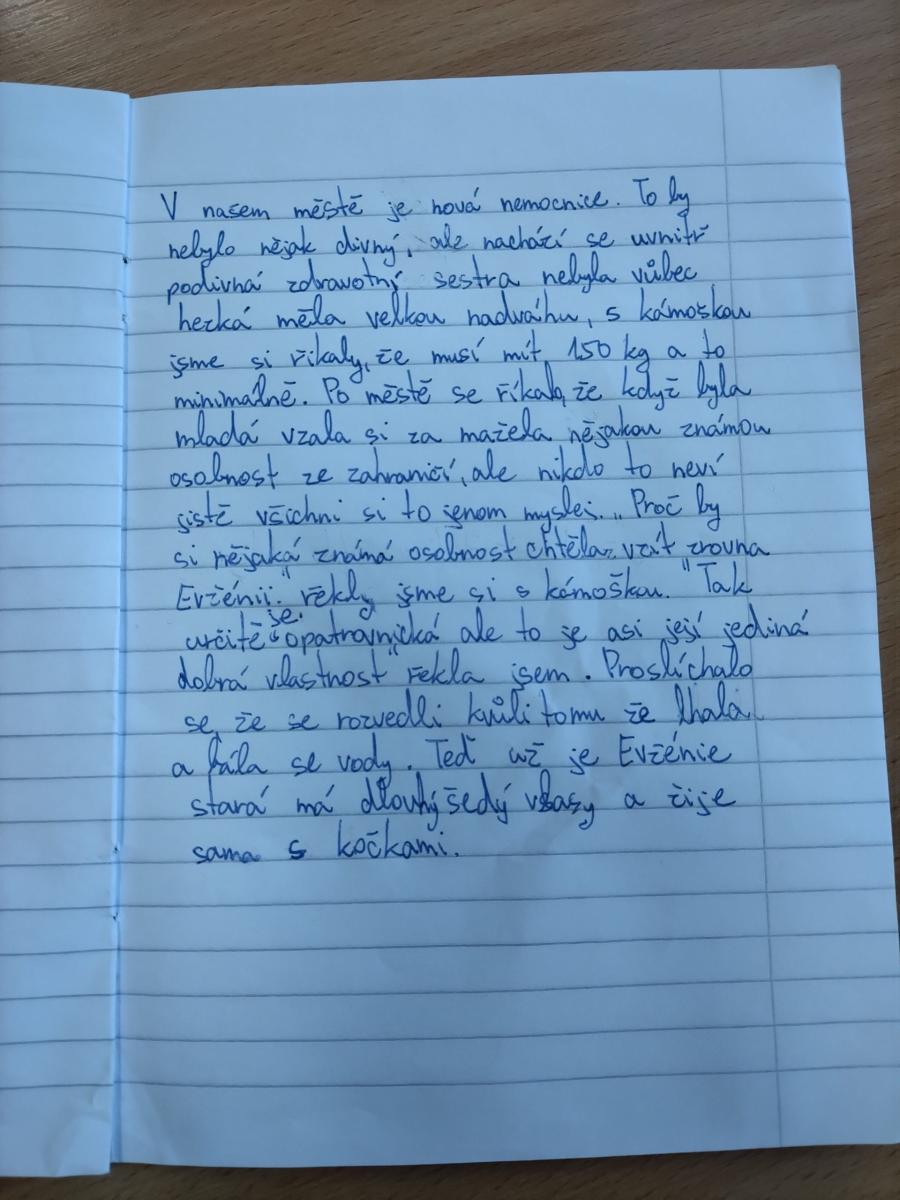 V našem městě je nová nemocnice. To by
nebylo nějak divný, ale nachází se uvnitř
podivná zdravotný sestra nebyla vůbec
hezká měla velkou nadváhu, s kámoškou
jsme si říkaly, že musí mít 150 kg a to
minimálně. Po městě se říkalo, že když byla
mladá vzala si za mažela nějakou známou
osobnost ze zahraničí, ale nikdo to neví
jistě všichni si to jenom myslej. „Proč by
si nějaká známá osobnost chtěla vzít zrovna
Evžénii." řekly jsme si s kámoškou. "Tak
určitě je opatrovnická ale to je asi její jediná
dobrá vlastnost" řekla jsem. Proslíchalo
se, že se rozvedli kvůli tomu že lhala
a bála se vody. Teď už je Evžénie
stará má dlouhý šedý vlasy a žije
sama s kočkami.